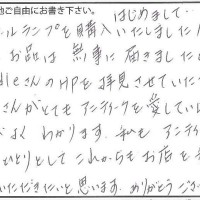 ご自由にお書き下さい。
はじめまして…
ルランプを購入いたしました
お品は無事に届きました
さんのHPを拝見させていた
さんがとてもアンティークを愛してい
よくわかります。私もアンティ
ひとりとしてこれからもお店を
いただきたいと思います。ありがとうござ